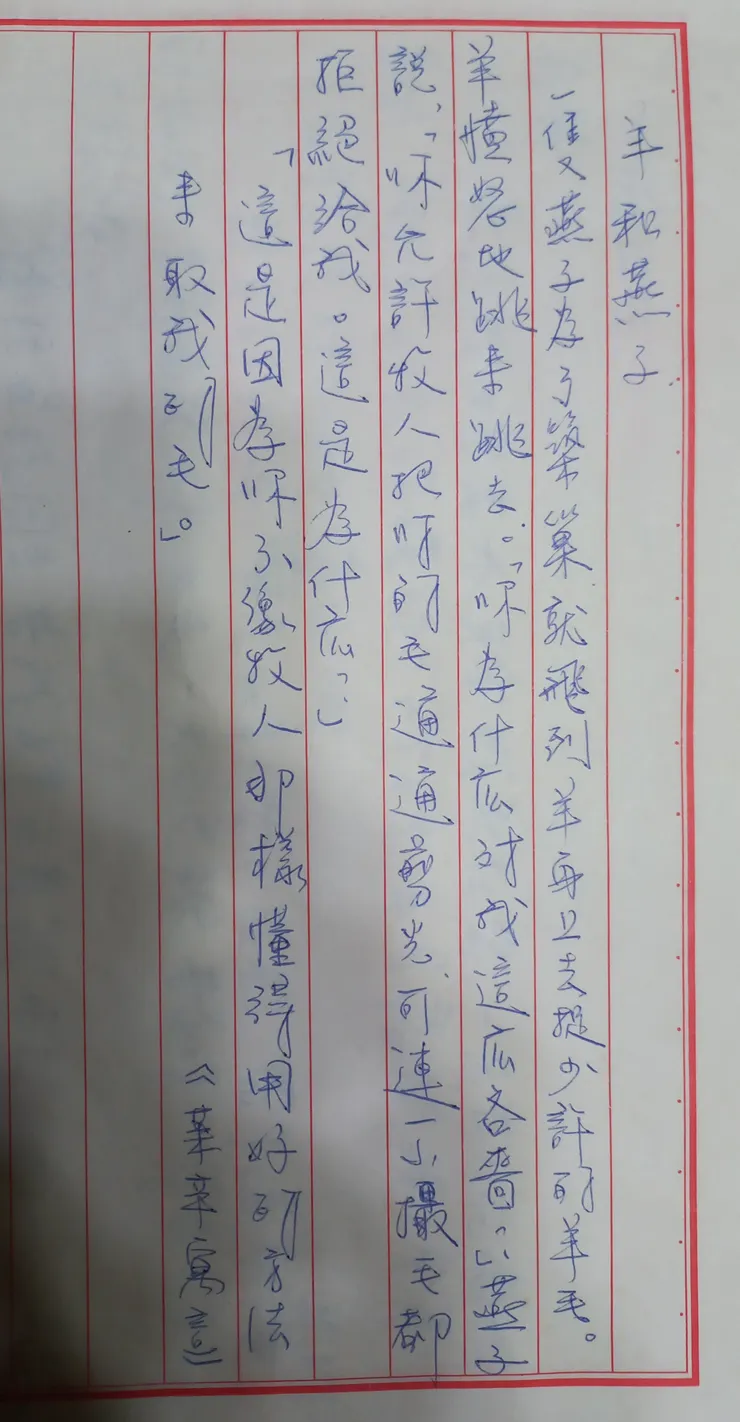 羊和燕子
一隻燕子為了築巢就飛到羊身上去捉少許的羊毛。
羊憤怒地跳來跳去。「你為什麼對我這麼吝嗇?」燕子
說,「你允許牧人把你的毛通通剪光,可連一小撮毛都
拒絕給我。這是為什麼?」
「這是因為你不像牧人那樣懂得用好的方法
來取我的毛。」
《萊辛寓言》